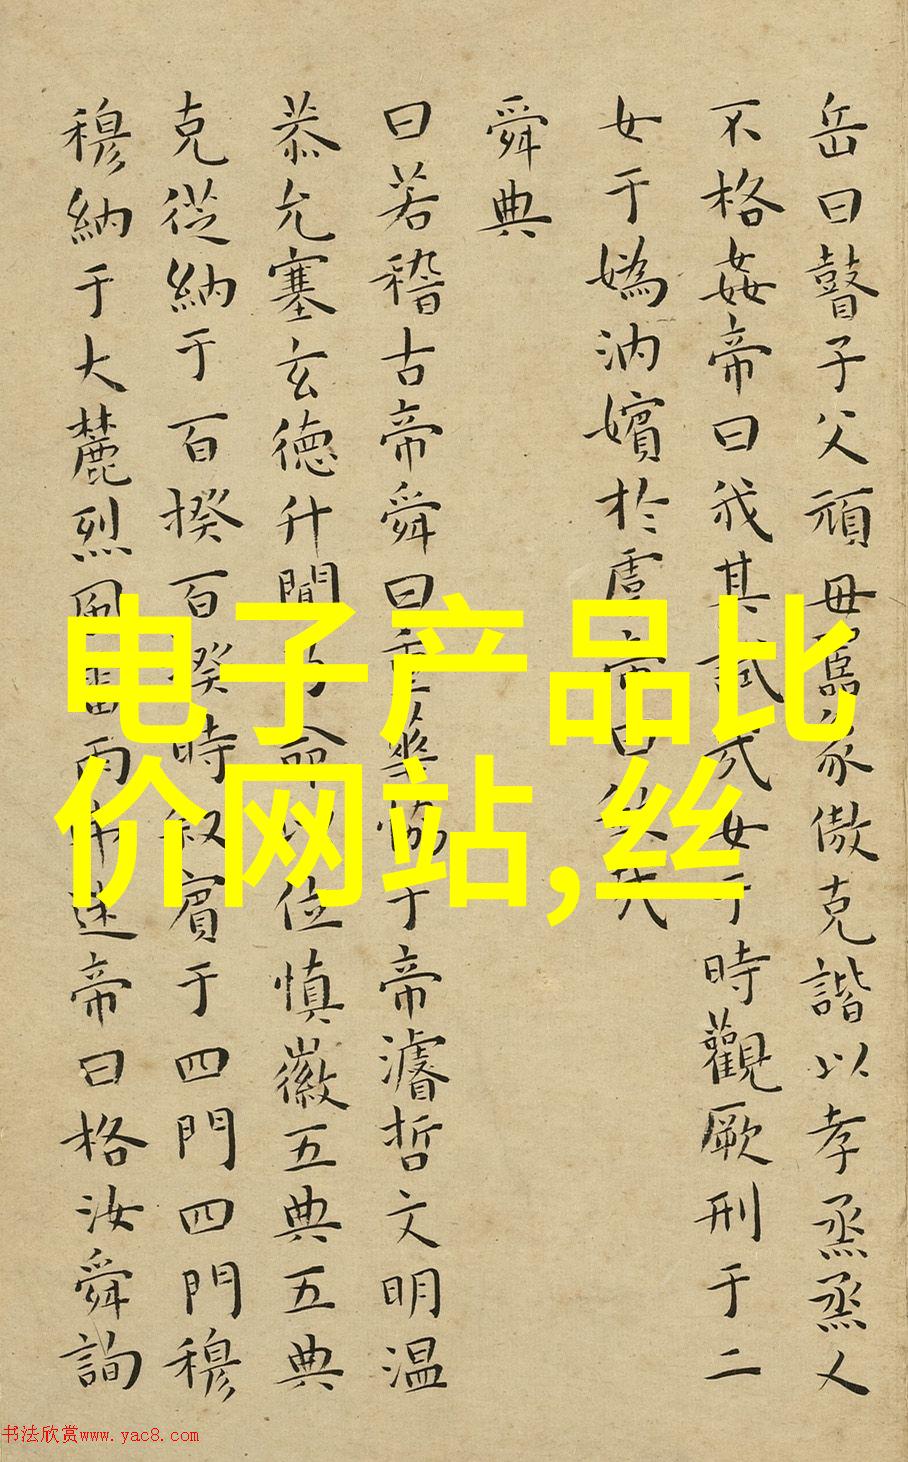 岳曰瞽子父頑母嚚象傲克諧以孝烝烝乂
不格姦帝曰我其試哉女于時觀厥刑于二
女于媯汭嬪於虞帝曰欽哉
舜典
曰若稽古帝舜曰重華協于帝濬哲文明温
恭允塞玄德升聞乃命以位慎徽五典五典
克從納于百揆百揆時叙賓于四門四門穆
穆納于大麓烈風雷雨弗迷帝曰格汝舜詢
电子产品比
价网站,丝
书法欣赏www.yac8.com